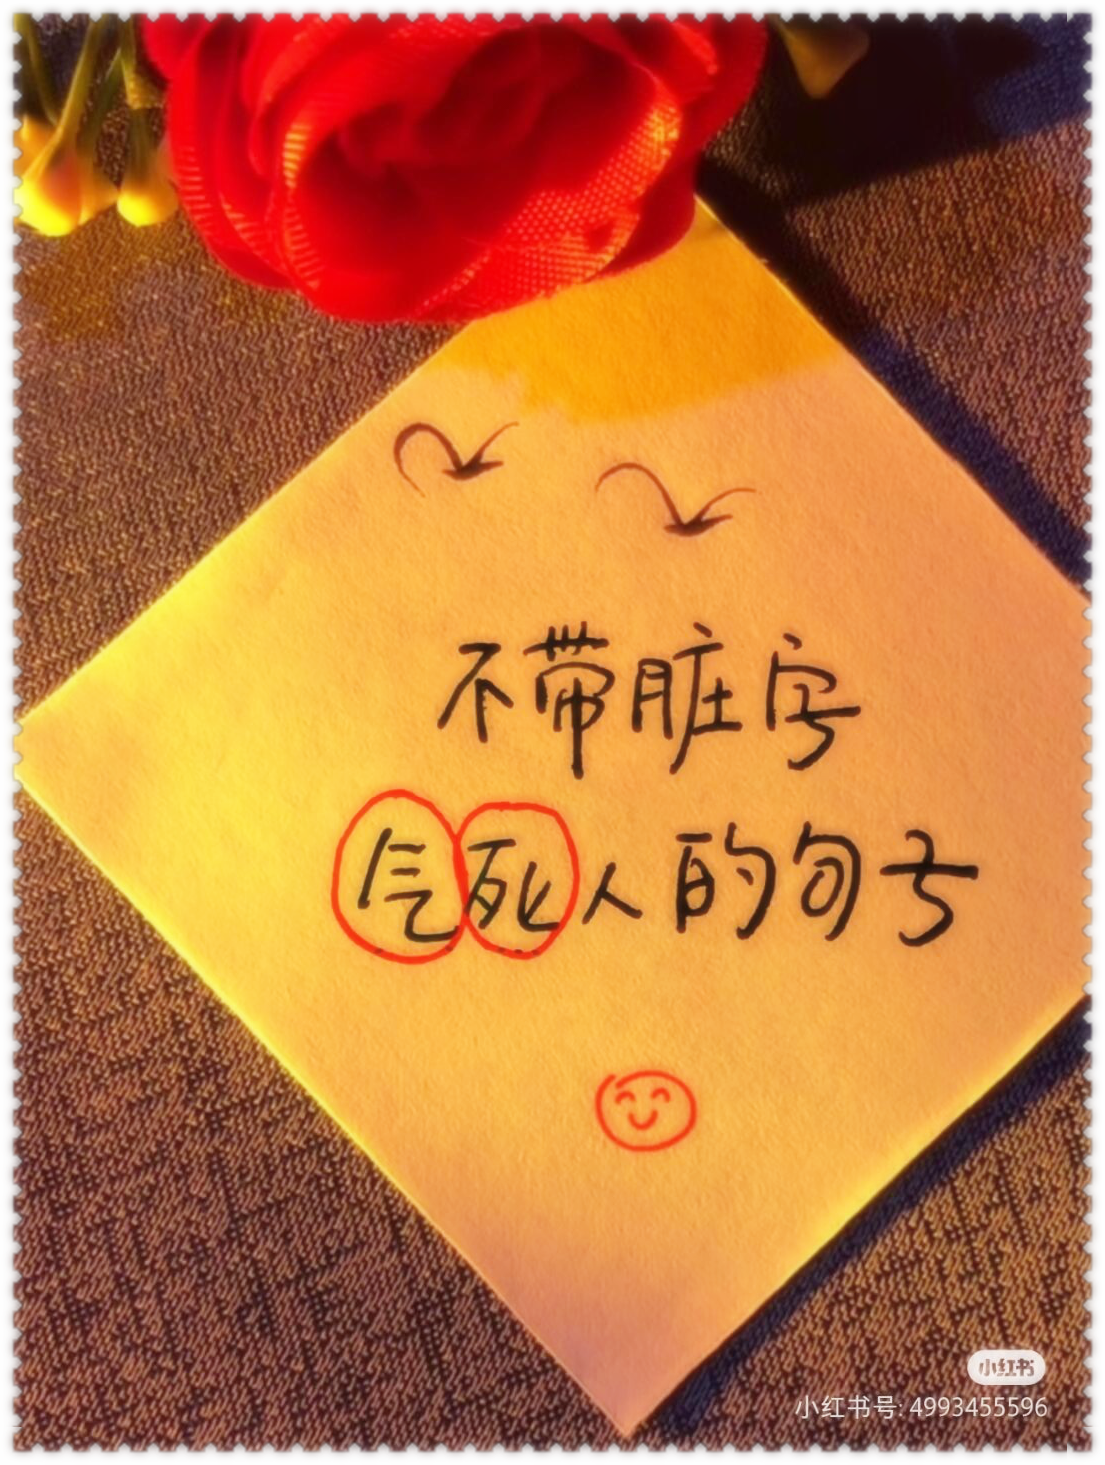 不带脏字
气死人的句子
小红书
小红书号: 4993455596